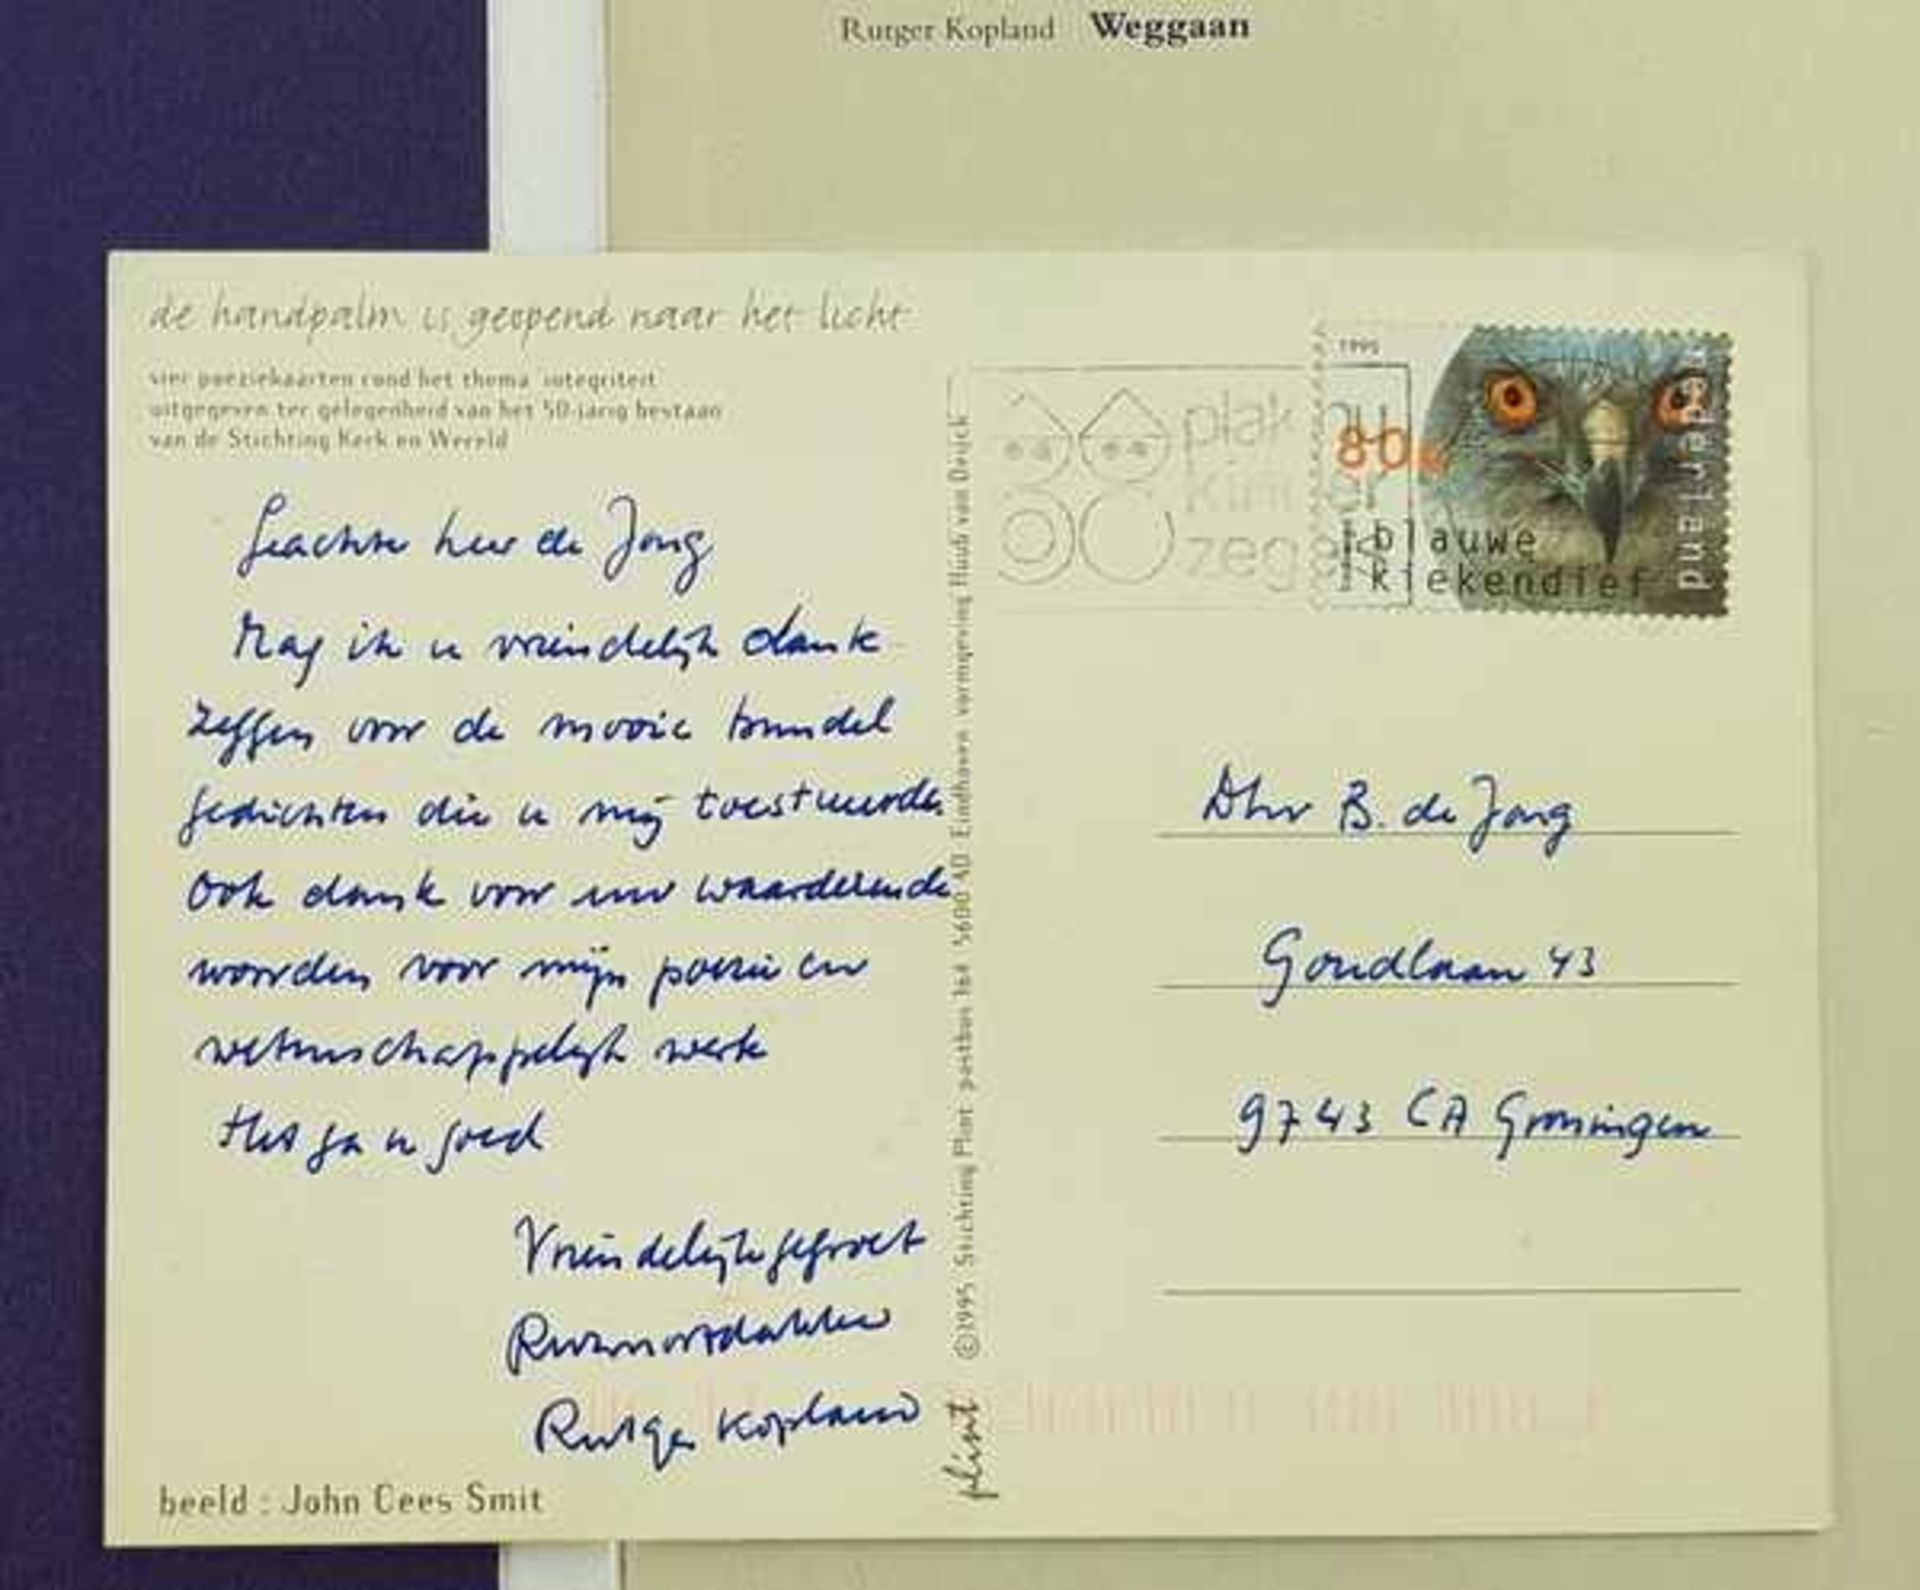 Rutger Kopland Weggaan
de handpalm is geopend naar het licht
vier poëziekaarten rond het thema integriteit
uitgegeven ter gelegenheid van het 50-jarig bestaan
van de Stichting Kerk en Wereld
Geachte heer de Jong
Mag ik u vriendelijk dank
zeggen voor de mooie bundel
gedichten die u mij toestuurde.
Ook dank voor uw waarderende
woorden voor mijn poëzie en
wetenschappelijk werk
Het ga u goed
Vriendelijke gegroet
Rutger Kopland
beeld : John Cees Smit
plint ©1995 Stichting Plint postbus 164 5600 AD Eindhoven vormgeving Huub van Osick
plak nu
kinder
zegels
1995
80
blauwe
kiekendief
Nederland
Dhr B. de Jong
Goudlaan 43
9743 CA Groningen